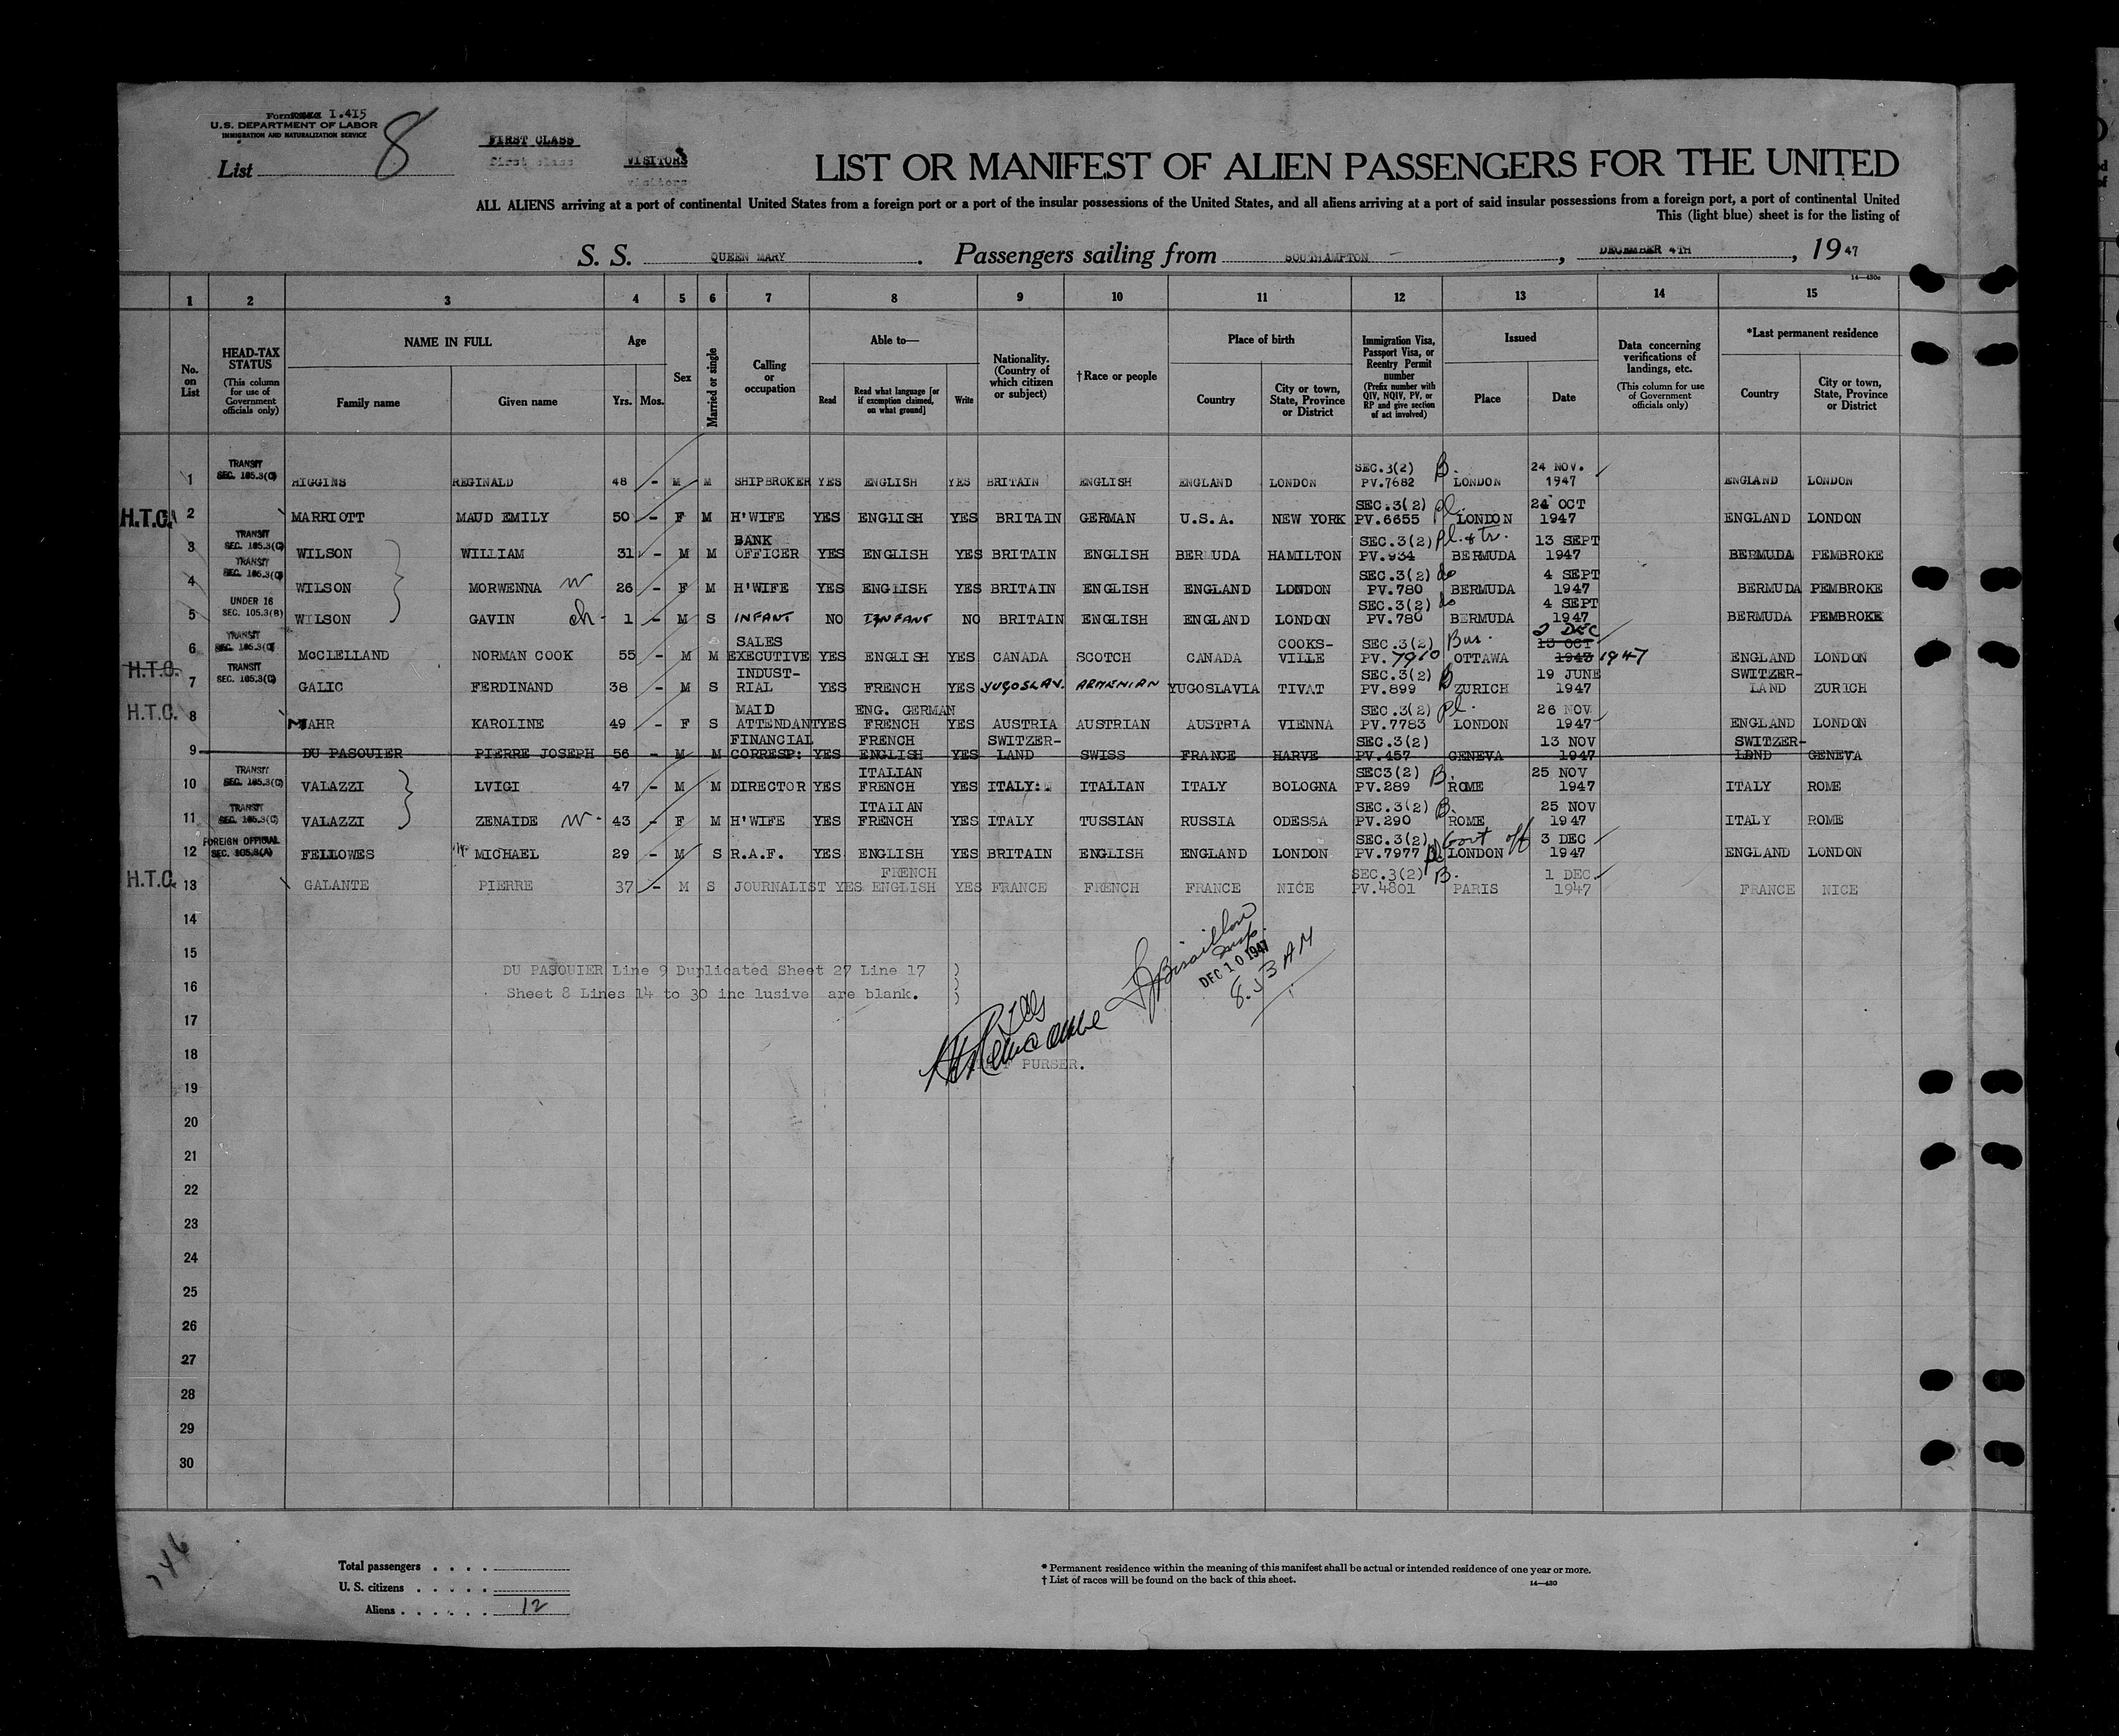 Form I.415
U.S. DEPARTMENT OF LABOR
IMMIGRATION AND NATURALIZATION SERVICE
List 8
FIRST CLASS
first class
VISITORS
visitors
LIST OR MANIFEST OF ALIEN PASSENGERS FOR THE UNITED
ALL ALIENS arriving at a port of continental United States from a foreign port or a port of the insular possessions of the United States, and all aliens arriving at a port of said insular possessions from a foreign port, a port of continental United
This (light blue) sheet is for the listing of
S. S. QUEEN MARY. Passengers sailing from SOUTHAMPTON, DECEMBER 4TH, 1947
14—430e
1 2 3 4 5 6 7 8 9 10 11 12 13 14 15
No. on List
HEAD-TAX STATUS (This column for use of Government officials only)
NAME IN FULL
Family name Given name
Age
Yrs. Mos.
Sex
Married or single
Calling or occupation
Able to—
Read
Read what language [or if exemption claimed, on what ground]
Write
Nationality. (Country of which citizen or subject)
†Race or people
Place of birth
Country
City or town, State, Province or District
Immigration Visa, Passport Visa, or Reentry Permit number (Prefix number with QIV, NQIV, PV, or RP and give section of act involved)
Issued
Place Date
Data concerning verifications of landings, etc. (This column for use of Government officials only)
*Last permanent residence
Country
City or town, State, Province or District
1 TRANSIT SEC. 105.3(C) HIGGINS REGINALD 48 - M M SHIPBROKER YES ENGLISH YES BRITAIN ENGLISH ENGLAND LONDON SEC.3(2) PV.7682 B. LONDON 24 NOV. 1947 ENGLAND LONDON
H.T.C. 2 MARRIOTT MAUD EMILY 50 - F M H'WIFE YES ENGLISH YES BRITAIN GERMAN U.S.A. NEW YORK SEC.3(2) PV.6655 pl. LONDON 24 OCT 1947 ENGLAND LONDON
3 TRANSIT SEC. 105.3(C) WILSON WILLIAM 31 - M M BANK OFFICER YES ENGLISH YES BRITAIN ENGLISH BERMUDA HAMILTON SEC.3(2) PV.934 pl. & tr. BERMUDA 13 SEPT 1947 BERMUDA PEMBROKE
4 TRANSIT SEC. 105.3(C) WILSON MORWENNA w 26 - F M H'WIFE YES ENGLISH YES BRITAIN ENGLISH ENGLAND LONDON SEC.3(2) PV.780 do BERMUDA 4 SEPT 1947 BERMUDA PEMBROKE
5 UNDER 16 SEC. 105.3(B) WILSON GAVIN ch - 1 - M S INFANT NO INFANT NO BRITAIN ENGLISH ENGLAND LONDON SEC.3(2) PV.780 do BERMUDA 4 SEPT 1947 BERMUDA PEMBROKE
6 TRANSIT SEC. 105.3(C) McCLELLAND NORMAN COOK 55 - M M SALES EXECUTIVE YES ENGLISH YES CANADA SCOTCH CANADA COOKS-VILLE SEC.3(2) PV. 7910 Bus. OTTAWA 2 DEC 13 OCT 1947 1947 ENGLAND LONDON
H.T.C. 7 TRANSIT SEC. 105.3(C) GALIC FERDINAND 38 - M S INDUST-RIAL YES FRENCH YES YUGOSLAV. ARMENIAN YUGOSLAVIA TIVAT SEC.3(2) PV.899 B ZURICH 19 JUNE 1947 SWITZER-LAND ZURICH
H.T.C. 8 MAHR KAROLINE 49 - F S MAID ATTENDANT YES ENG. GERMAN FRENCH YES AUSTRIA AUSTRIAN AUSTRIA VIENNA SEC.3(2) PV.7783 pl. LONDON 26 NOV 1947 ENGLAND LONDON
9 DU PASOUIER PIERRE JOSEPH 56 - M M FINANCIAL CORRESP: YES FRENCH ENGLISH YES SWITZER-LAND SWISS FRANCE HARVE SEC.3(2) PV.457 GENEVA 13 NOV 1947 SWITZER-LDND GENEVA
10 TRANSIT SEC. 105.3(C) VALAZZI LVIGI 47 - M M DIRECTOR YES ITALIAN FRENCH YES ITALY: ITALIAN ITALY BOLOGNA SEC3(2) PV.289 B. ROME 25 NOV 1947 ITALY ROME
11 TRANSIT SEC. 105.3(C) VALAZZI ZENAIDE w - 43 - F M H'WIFE YES ITALIAN FRENCH YES ITALY TUSSIAN RUSSIA ODESSA SEC.3(2) PV.290 B. ROME 25 NOV 1947 ITALY ROME
12 FOREIGN OFFICIAL SEC. 105.3(A) FELLOWES MICHAEL 29 - M S R.A.F. YES ENGLISH YES BRITAIN ENGLISH ENGLAND LONDON SEC.3(2) PV.7977 Govt off LONDON 3 DEC 1947 ENGLAND LONDON
H.T.C. 13 GALANTE PIERRE 37 - M S JOURNALIST YES FRENCH ENGLISH YES FRANCE FRENCH FRANCE NICE SEC.3(2) PV.4801 B. PARIS 1 DEC. 1947 FRANCE NICE
14
15
DU PASOUIER Line 9 Duplicated Sheet 27 Line 17 )
16
Sheet 8 Lines 14 to 30 inc lusive are blank. )
Insp.
DEC 10 1947
8.53 AM
17
18
PURSER.
19
20
21
22
23
24
25
26
27
28
29
30
Total passengers . . . .
U. S. citizens . . . . .
Aliens . . . . . . 12
* Permanent residence within the meaning of this manifest shall be actual or intended residence of one year or more.
† List of races will be found on the back of this sheet.
14—430